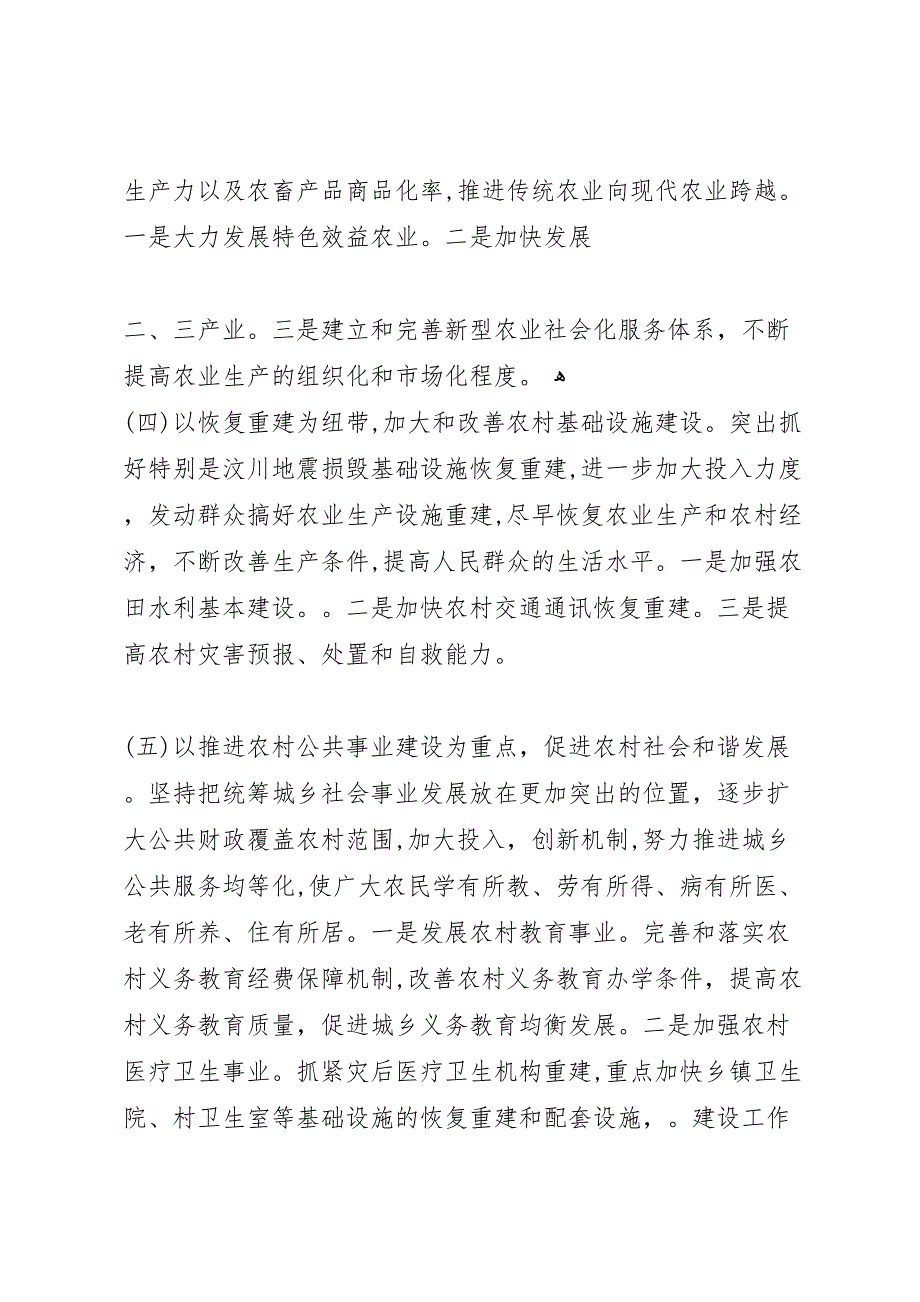 生产力以及农畜产品商品化率,推进传统农业向现代农业跨越。
一是大力发展特色效益农业。二是加快发展
二、三产业。三是建立和完善新型农业社会化服务体系，不断
提高农业生产的组织化和市场化程度。 ﻫ
(四)以恢复重建为纽带,加大和改善农村基础设施建设。突出抓
好特别是汶川地震损毁基础设施恢复重建,进一步加大投入力度
，发动群众搞好农业生产设施重建,尽早恢复农业生产和农村经
济，不断改善生产条件,提高人民群众的生活水平。一是加强农
田水利基本建设。。二是加快农村交通通讯恢复重建。三是提
高农村灾害预报、处置和自救能力。
(五)以推进农村公共事业建设为重点，促进农村社会和谐发展
。坚持把统筹城乡社会事业发展放在更加突出的位置，逐步扩
大公共财政覆盖农村范围,加大投入，创新机制,努力推进城乡
公共服务均等化,使广大农民学有所教、劳有所得、病有所医、
老有所养、住有所居。一是发展农村教育事业。完善和落实农
村义务教育经费保障机制,改善农村义务教育办学条件，提高农
村义务教育质量，促进城乡义务教育均衡发展。二是加强农村
医疗卫生事业。抓紧灾后医疗卫生机构重建,重点加快乡镇卫生
院、村卫生室等基础设施的恢复重建和配套设施，。建设工作